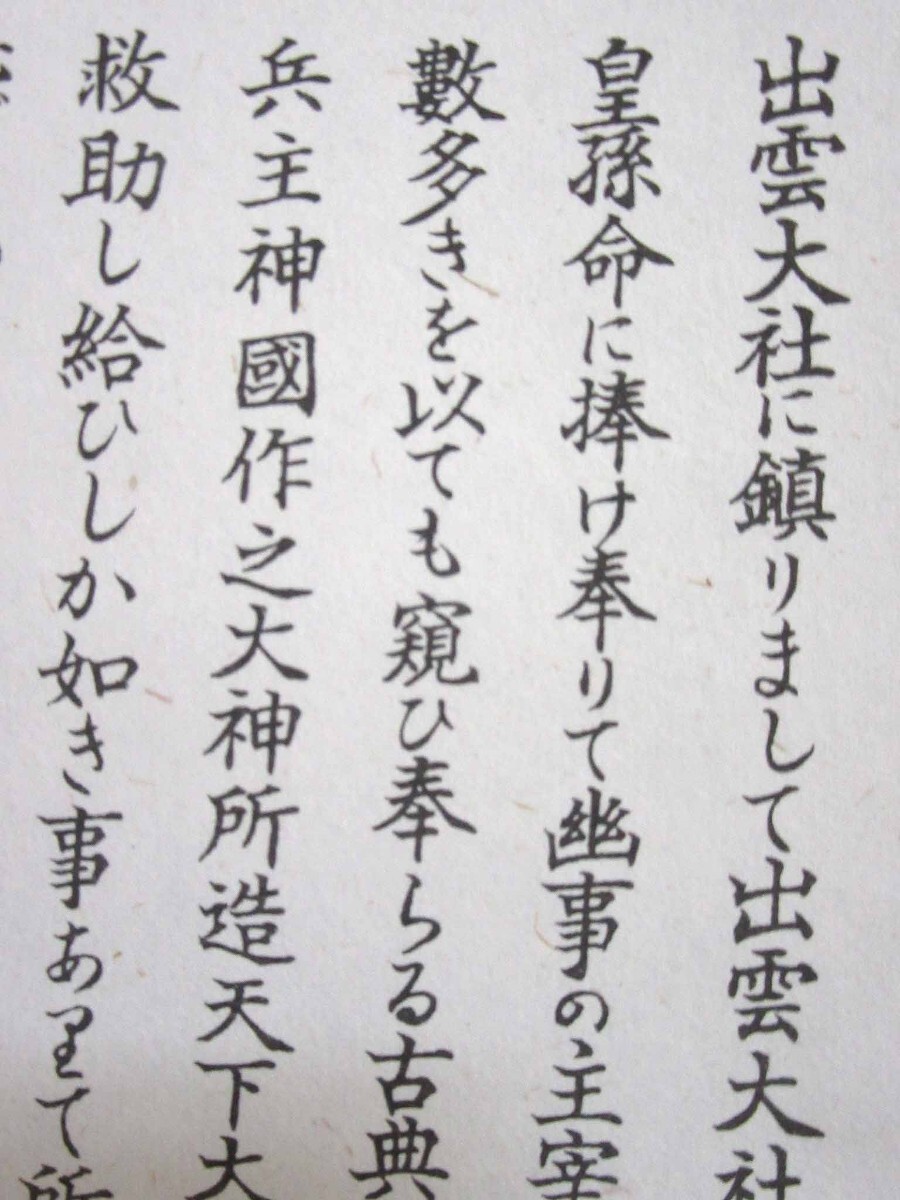 出雲大社に鎮りまして出雲大社
皇孫命に捧け奉りて幽事の主宰
數多きを以ても窺ひ奉らる古典
兵主神國作之大神所造天下大
救助し給ひしか如き事ありて所